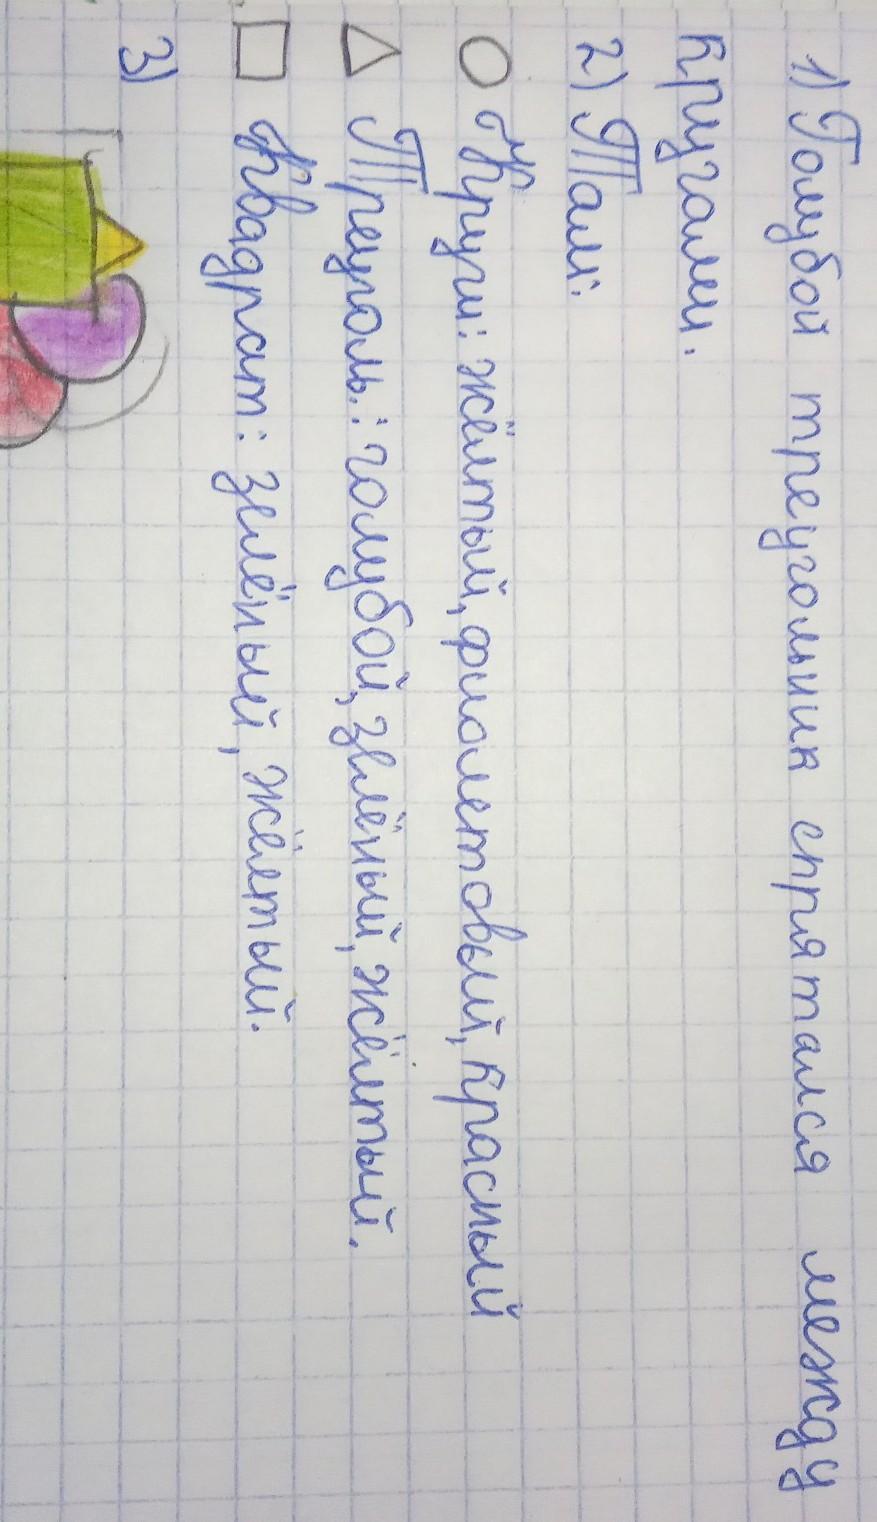 1) Голубой треугольник спрятался между
кругами.
2) Там:
Круги: жёлтый, фиолетовый, красный
Треуголь.: голубой, зелёный, жёлтый.
Квадрат: зелёный, жёлтый.
3)